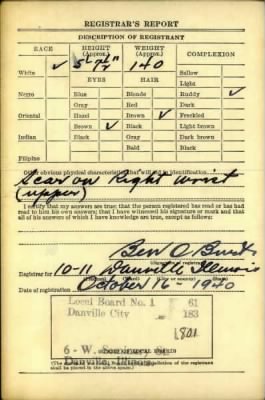 REGISTRAR'S REPORT
DESCRIPTION OF REGISTRANT
RACE HEIGHT (Approx.) WEIGHT (Approx.) COMPLEXION
White ✓ 5' 7½" 140 Sallow
EYES HAIR Light
Negro Blue Blonde Ruddy ✓
Gray Red Dark
Oriental Hazel Brown ✓ Freckled
Brown ✓ Black Light brown
Indian Black Gray Dark brown
Bald Black
Filipino
Other obvious physical characteristics that will aid in identification
Scar on Right Wrist
(upper)
I certify that my answers are true; that the person registered has read or has
had read to him his own answers; that I have witnessed his signature or mark and that
all of his answers of which I have knowledge are true, except as follows:
Ben O.
(Signature of registrar)
Registrar for 10-11 Danville Illinois
Date of registration October 16 - 1940
Local Board No. 1 61
Danville City 183
1801
6 - W.
Danville, Illinois